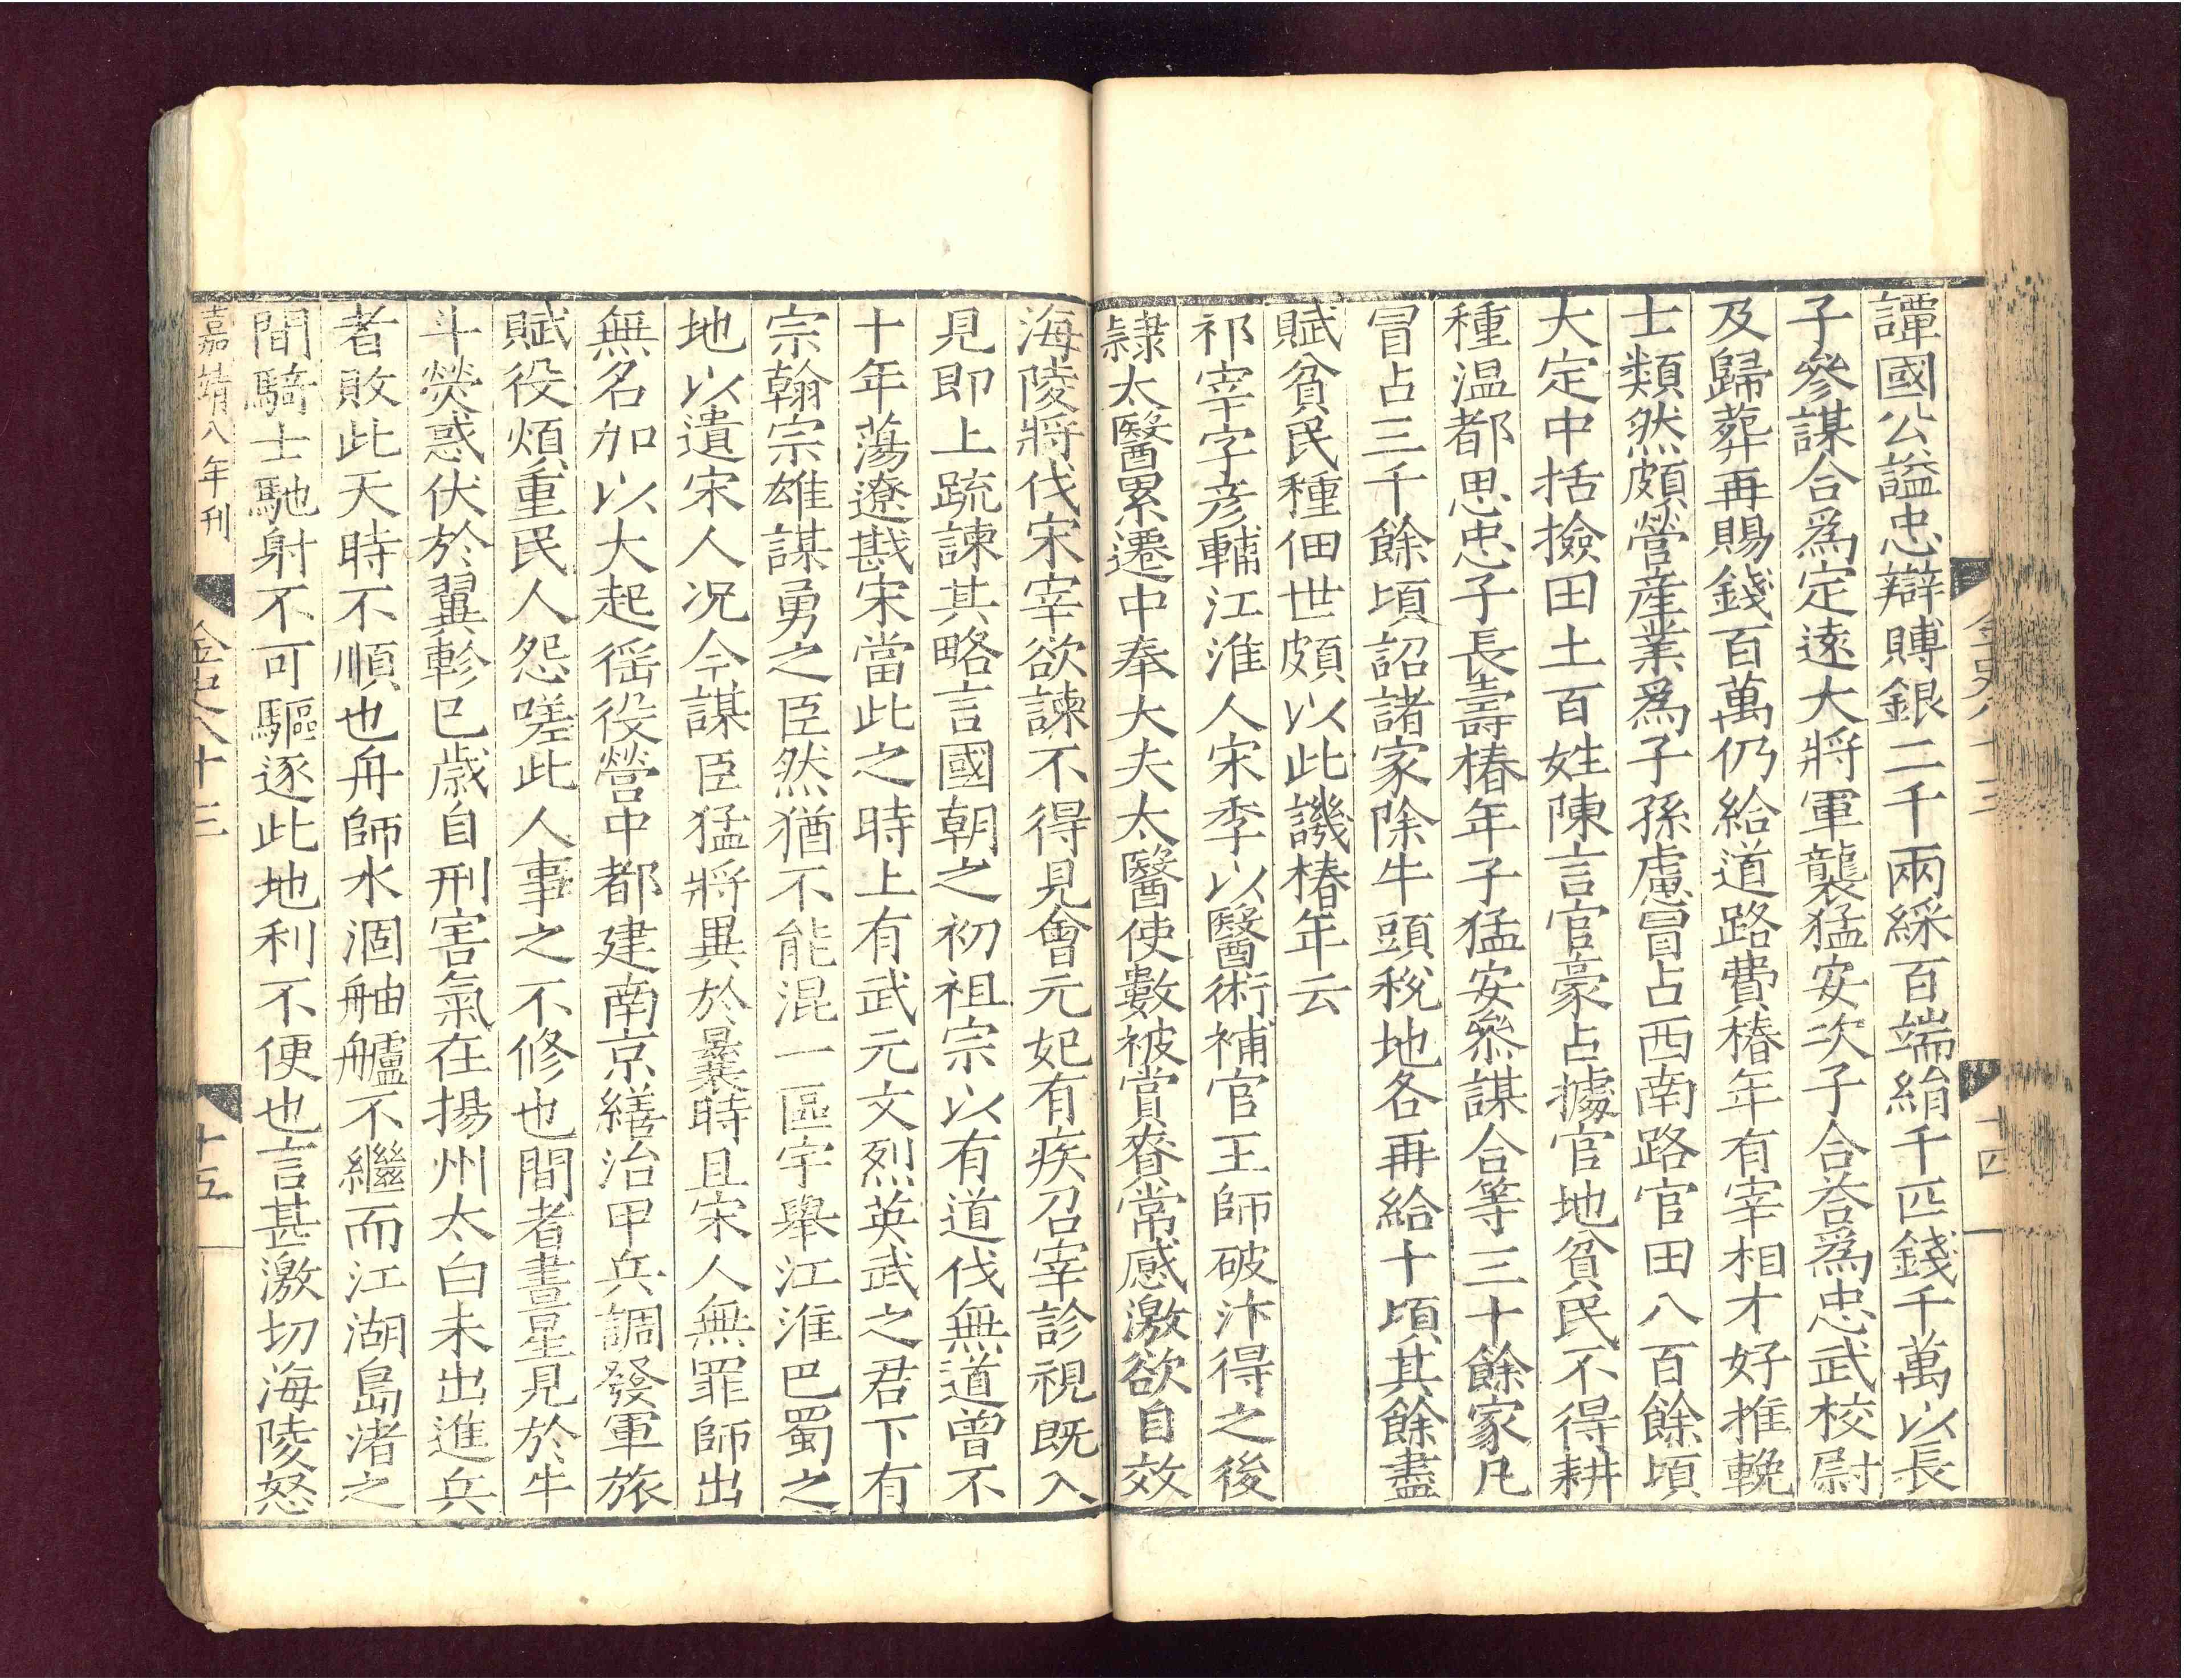 譚國公謚忠辯賻銀二千兩綵百端絹千匹錢千萬以長
子參謀合爲定遠大將軍襲猛安次子合荅爲忠武校尉
及歸葬再賜錢百萬仍給道路費椿年有宰相才好推輓
士類然頗營産業爲子孫慮冒占西南路官田八百餘頃
大定中括撿田土百姓陳言官豪占據官地貧民不得耕
種温都思忠子長壽椿年子猛安叅謀合等三十餘家凡
冒占三千餘頃詔諸家除牛頭稅地各再給十頃其餘盡
賦貧民種佃世頗以此譏椿年云
祁宰字彦輔江淮人宋季以醫術補官王師破汴得之後
隸太醫累遷中奉大夫太醫使數被賞賚常感激欲自效
金史八十三
十四
海陵將伐宋宰欲諫不得見會元妃有疾召宰診視既入
見即上疏諫其略言國朝之初祖宗以有道伐無道曾不
十年蕩遼戡宋當此之時上有武元文烈英武之君下有
宗翰宗雄謀勇之臣然猶不能混一區宇舉江淮巴蜀之
地以遺宋人况今謀臣猛將異於曩時且宋人無罪師出
無名加以大起徭役營中都建南京繕治甲兵調發軍旅
賦役煩重民人怨嗟此人事之不修也間者晝星見於牛
斗熒惑伏於翼軫巳歲自刑害氣在揚州太白未出進兵
者敗此天時不順也舟師水涸舳艫不繼而江湖島渚之
間騎士馳射不可驅逐此地利不便也言甚激切海陵怒
嘉靖八年刊
金史八十三
十五